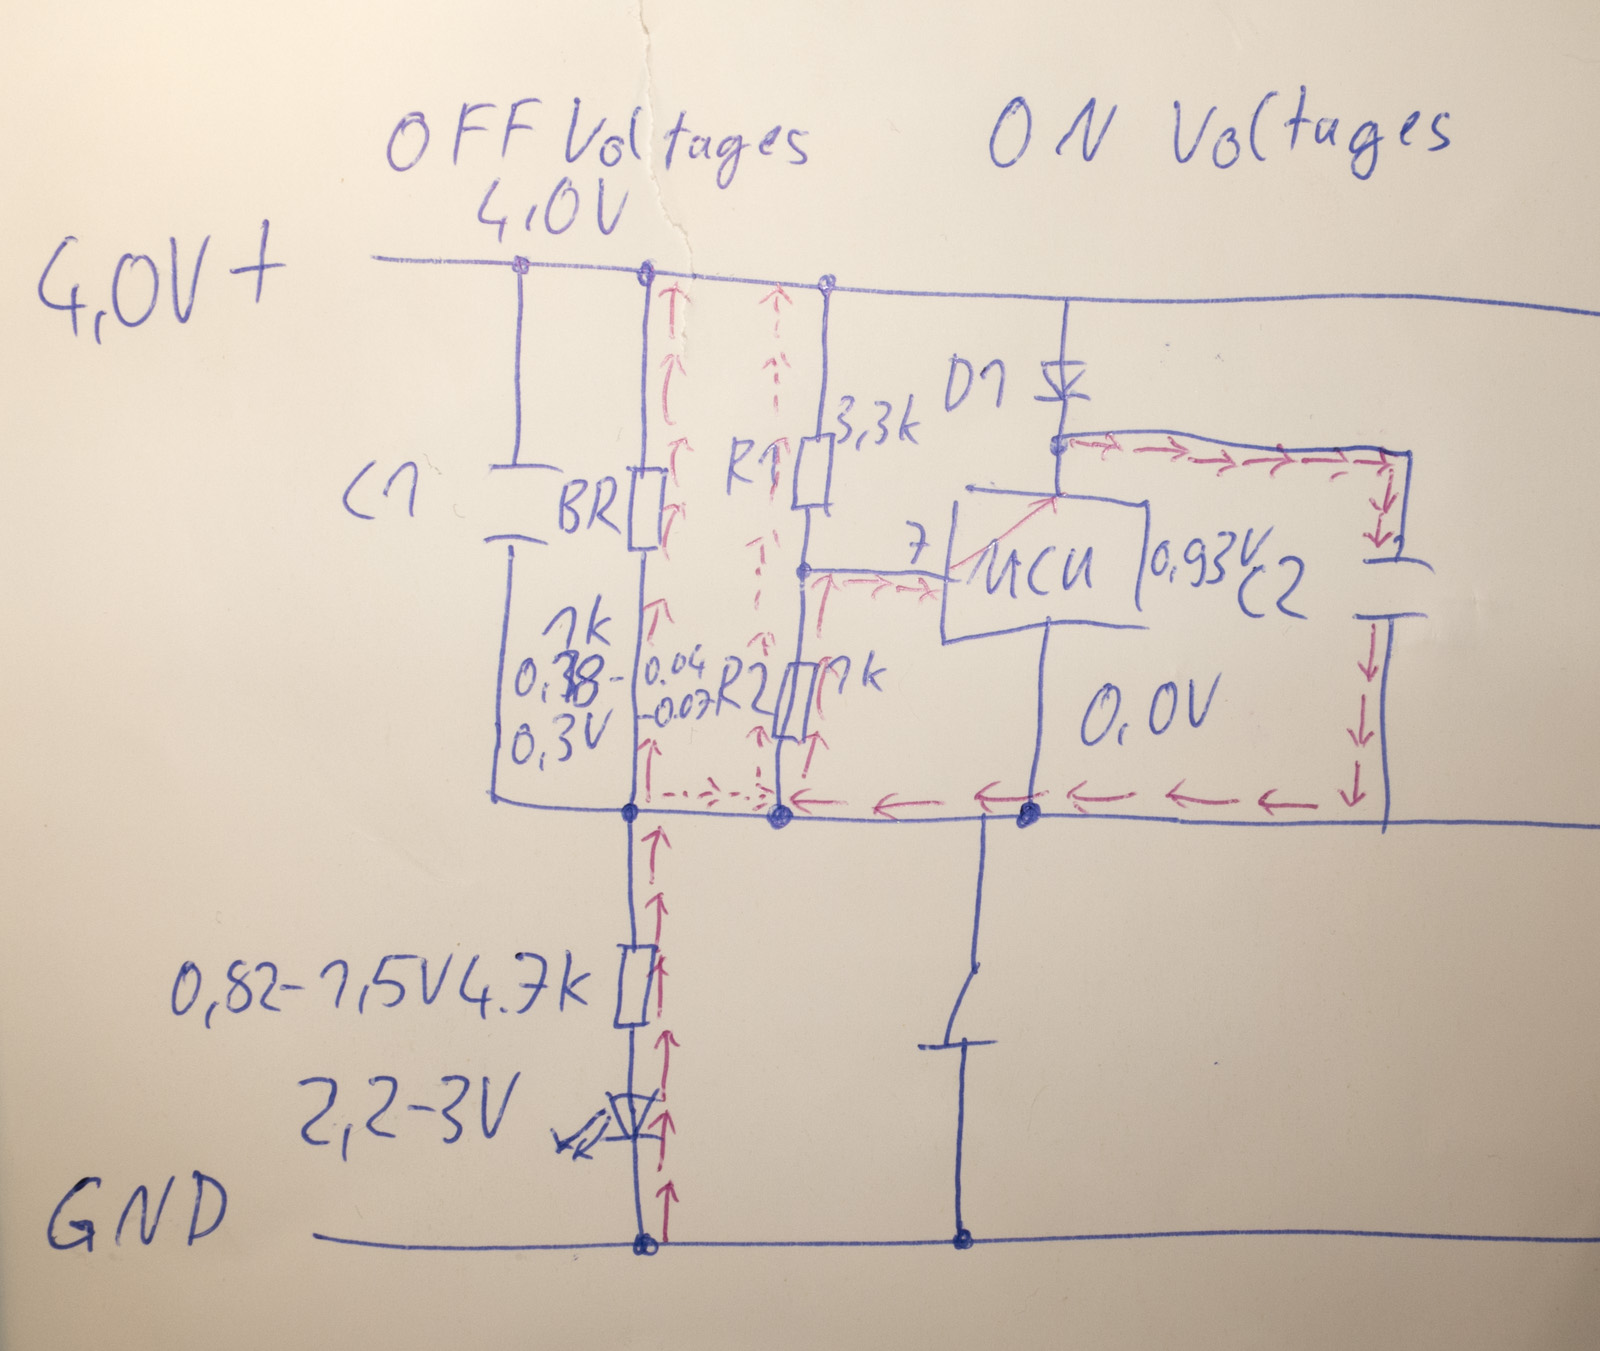 OFF Voltages
ON Voltages
4,0V
4,0V +
D1
3,3k
R1
C1
BR
7
MCU
0,93V
C2
1k
0,38-
0.04
-0.07
R2
1k
0,3V
0,0V
0,82-1,5V 4.7k
2,2-3V
GND